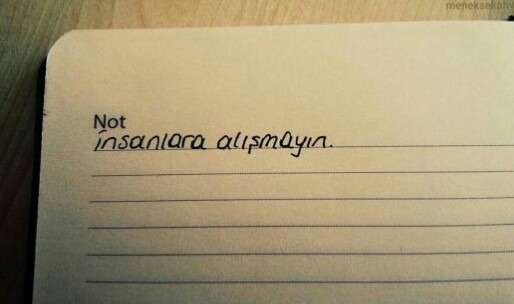 meneksekahv
Not
insanlara alışmayın.